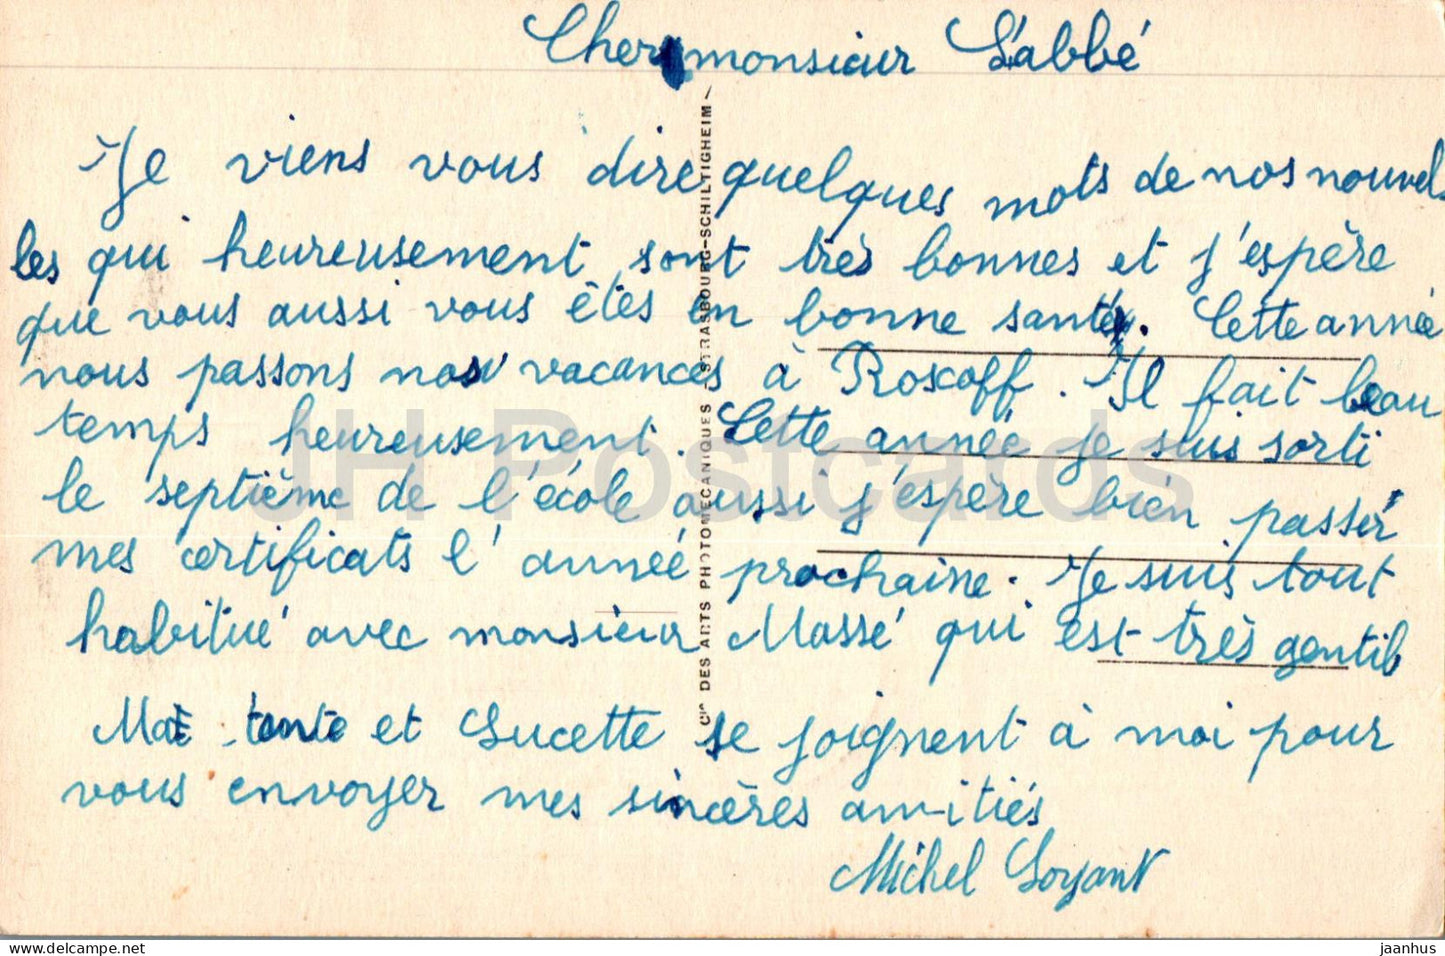 Cher monsieur L'abbé
Je viens vous dire quelques mots de nos nouvel-
les qui heureusement sont très bonnes et j'espère
que vous aussi vous êtes en bonne santé. Cette année
nous passons nos vacances à Roscoff. Il fait beau
temps heureusement. Cette année je suis sorti
le septième de l'école aussi j'espère bien passer
mes certificats l'année prochaine. Je suis tout
habitué avec monsieur Massé qui est très gentil
Ma tante et Lucette se joignent à moi pour
vous envoyer mes sincères amitiés
Michel Loyant
CIE DES ARTS PHOTOMECANIQUES - STRASBOURG-SCHILTIGHEIM -
JH Postcards
jaanhus